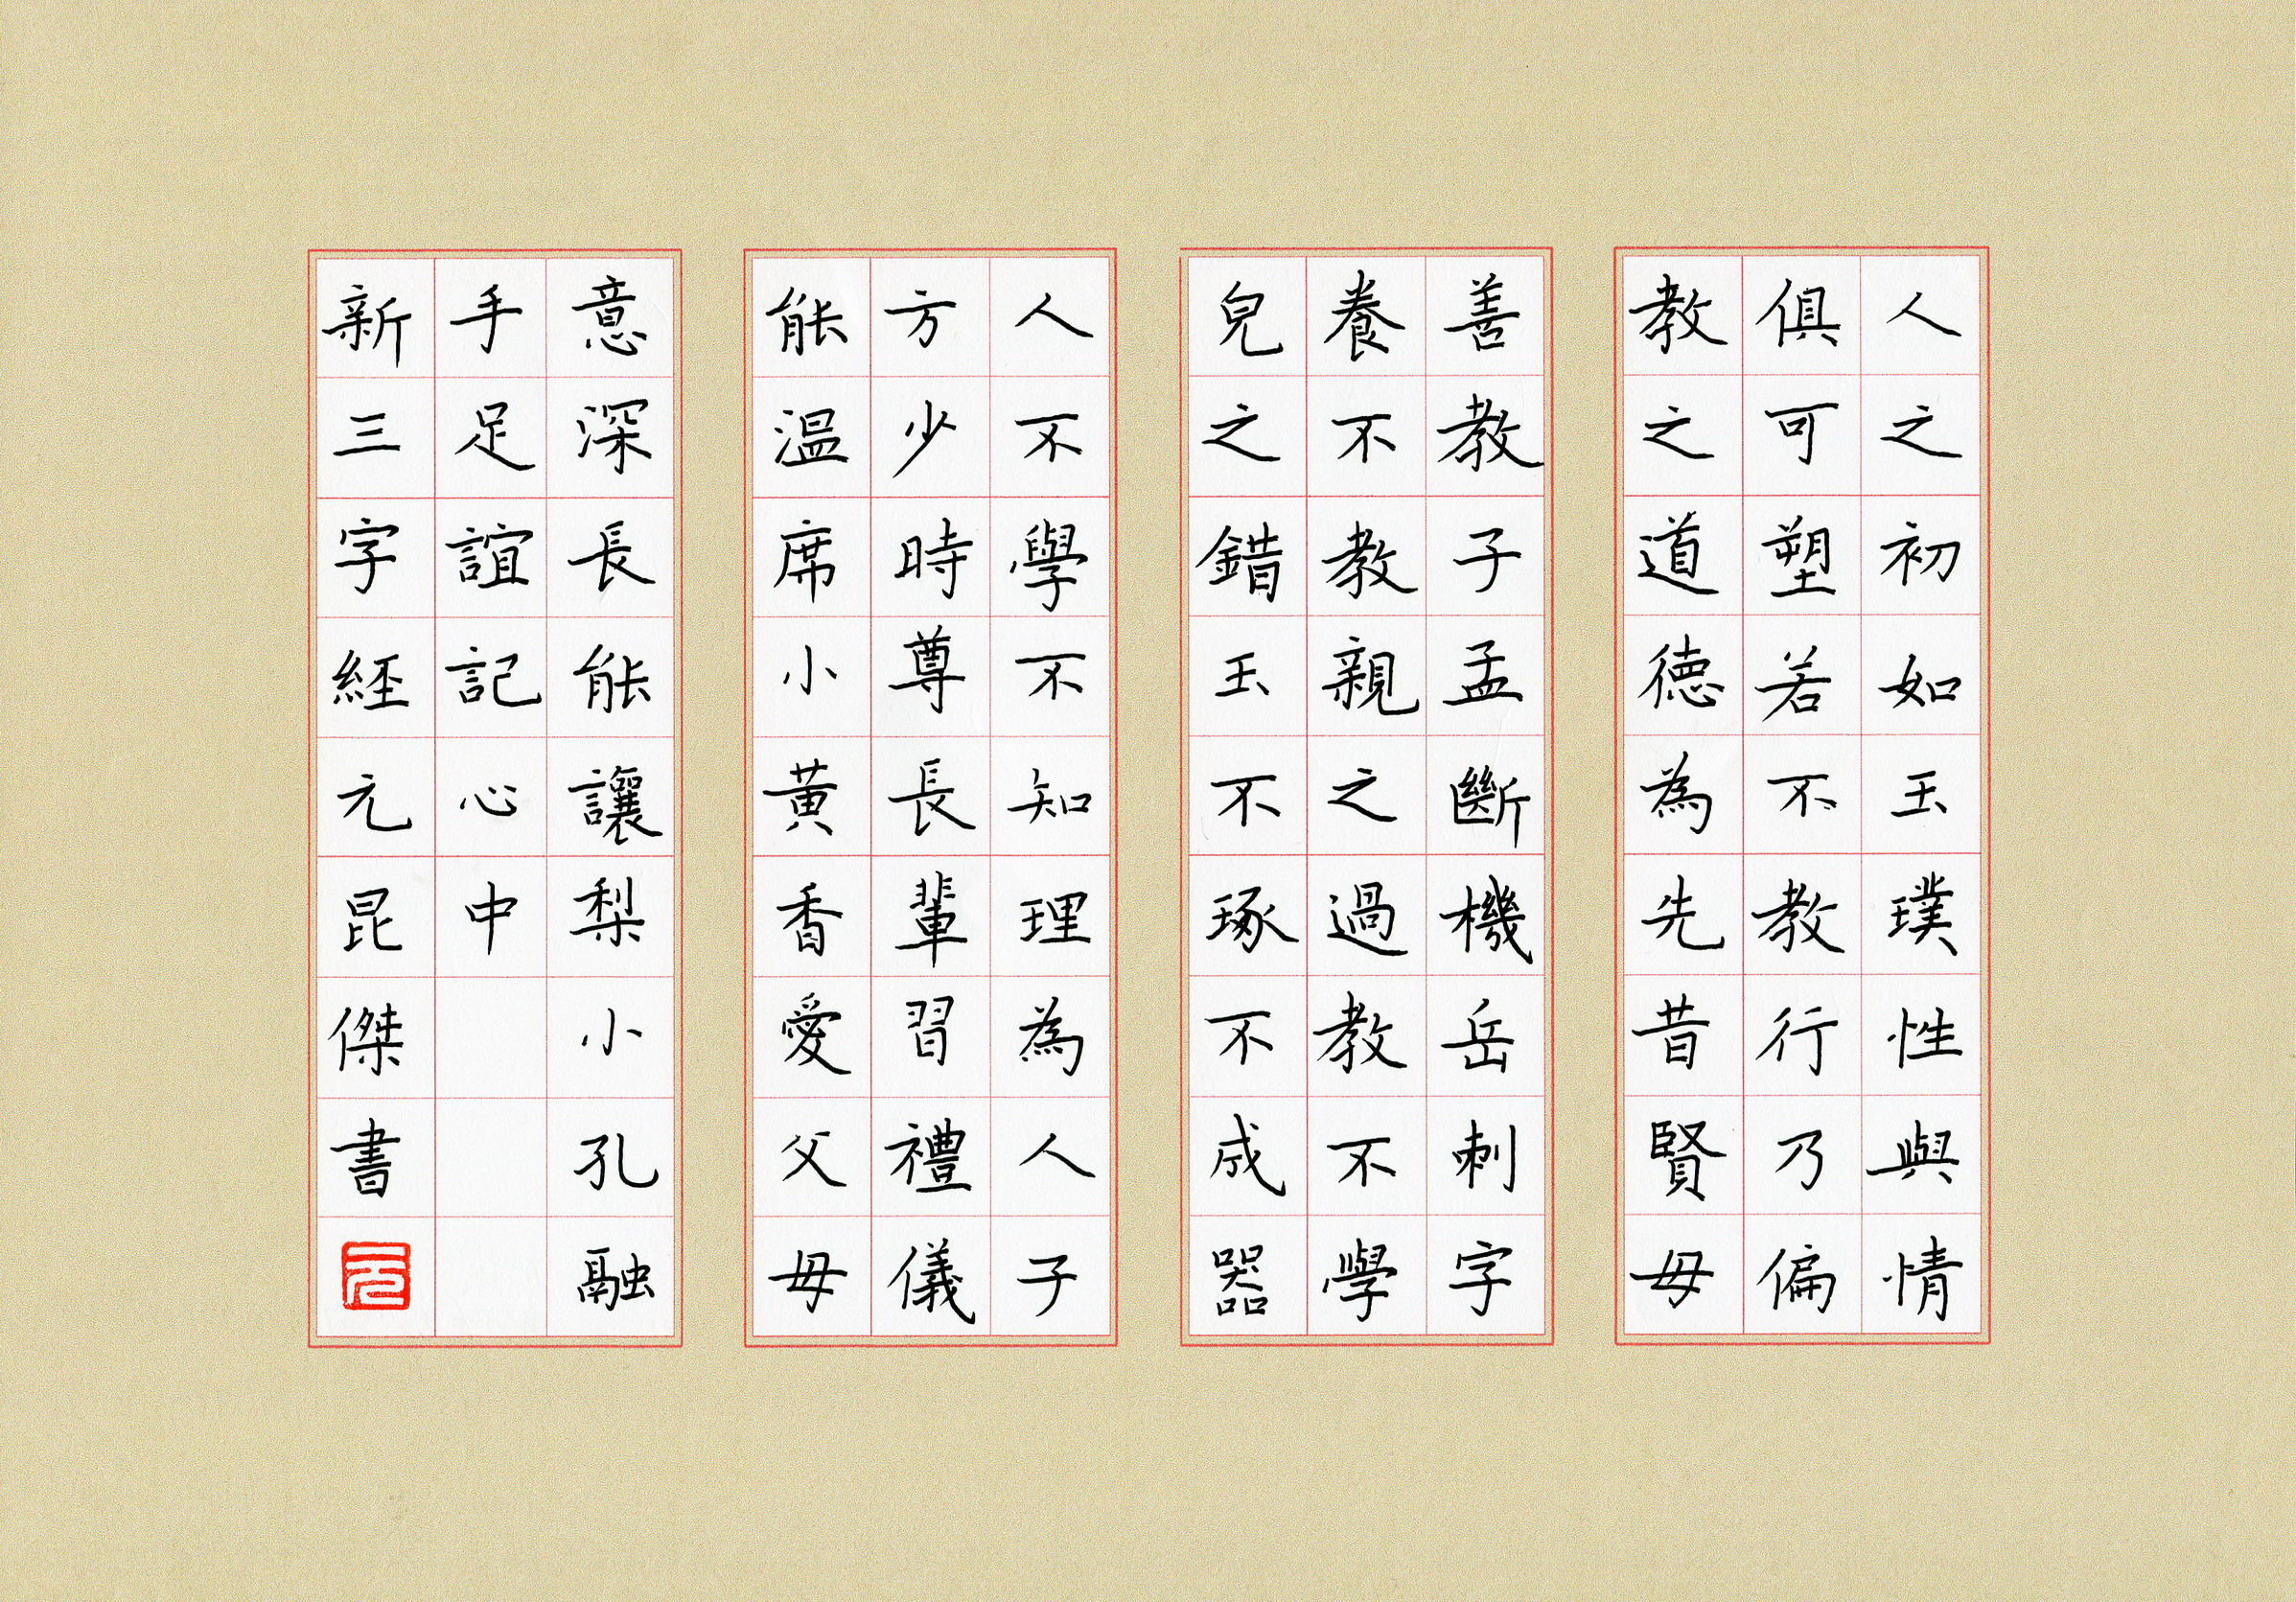 人之初如玉璞性與情
俱可塑若不教行乃偏
教之道德為先昔賢母
善教子孟斷機岳刺字
養不教親之過教不學
兒之錯玉不琢不成器
人不學不知理為人子
方少時尊長輩習禮儀
能温席小黃香愛父母
意深長能讓梨小孔融
手足誼記心中
新三字經元昆傑書
元